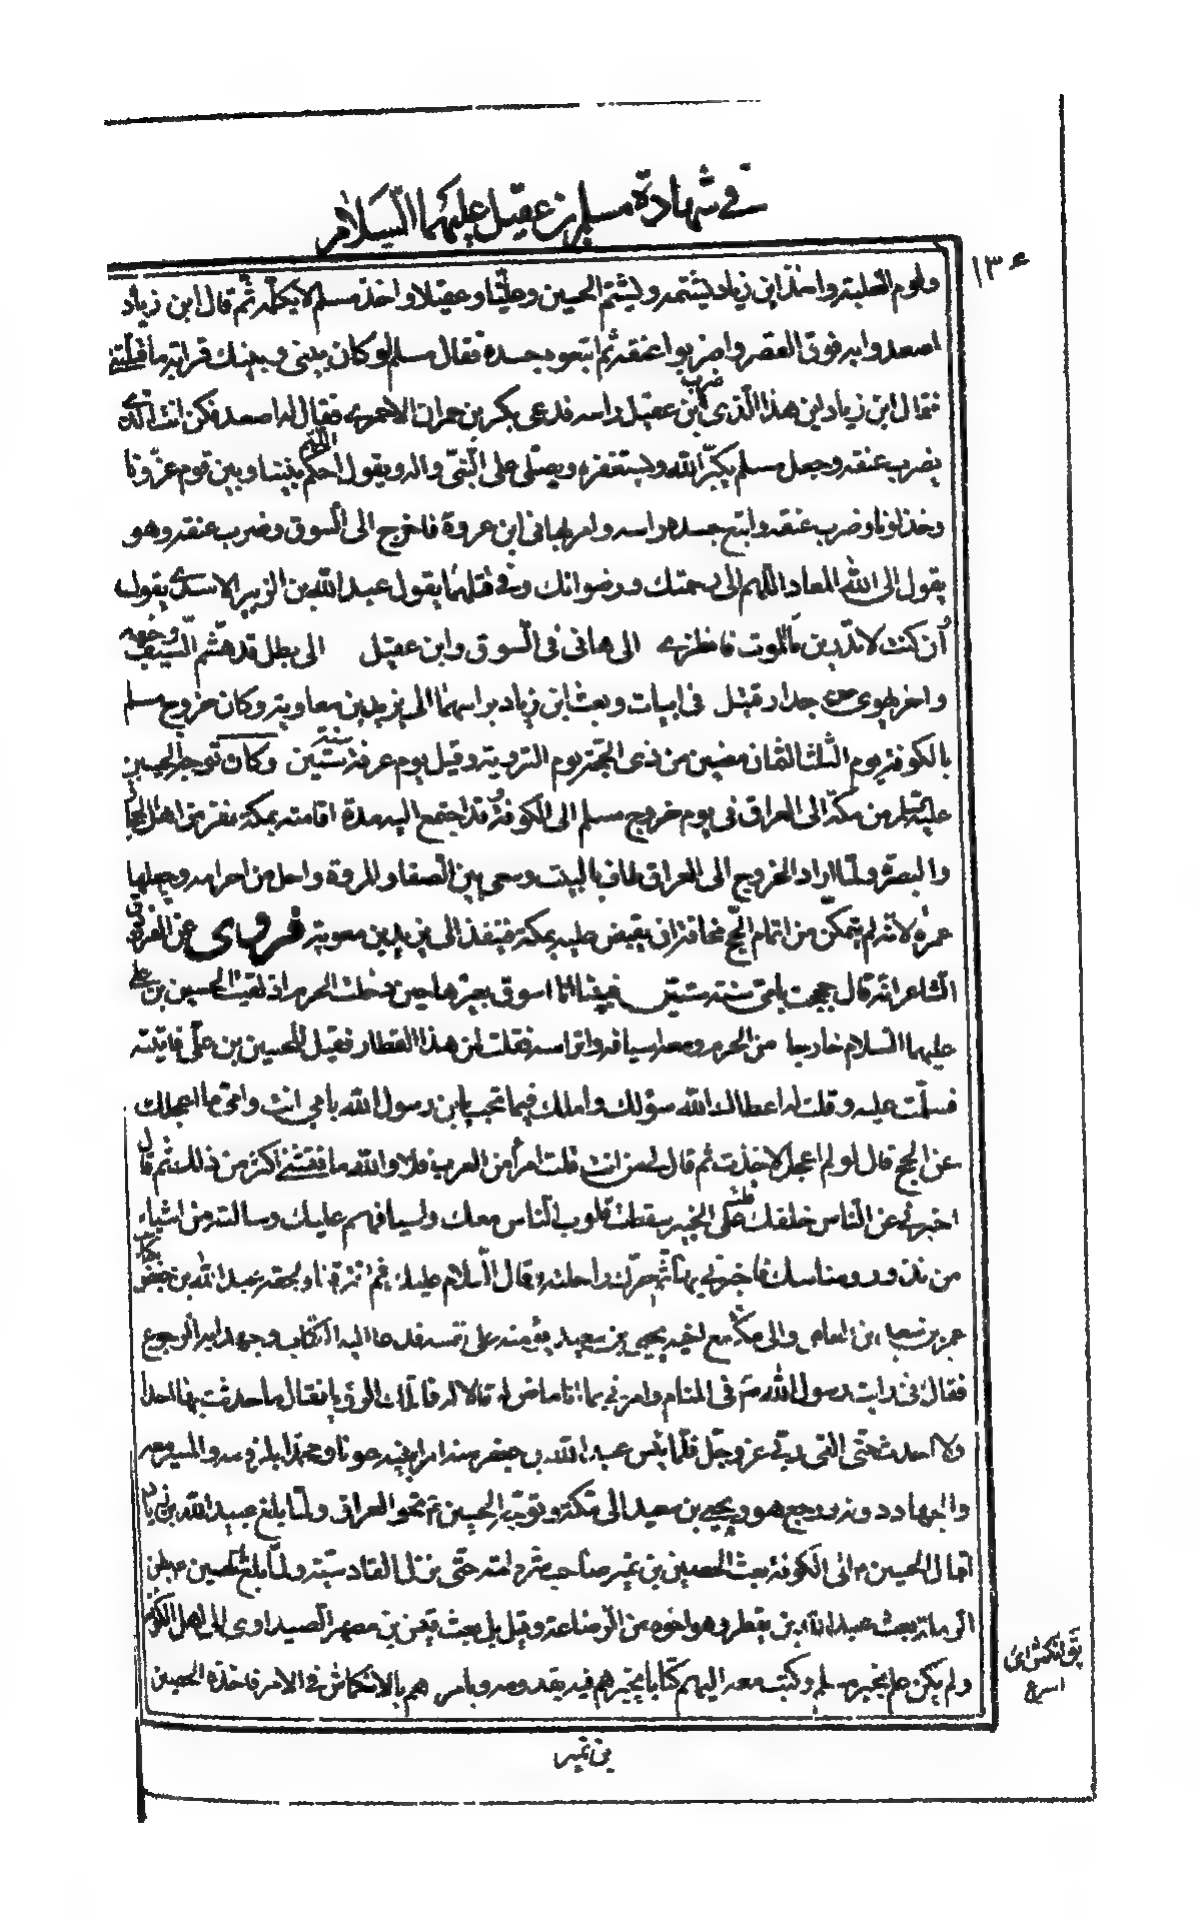 في شهادة مسلم بن عقيل عليهما السلام
١٣٤
ولؤم الغلبة واخذ ابن زياد يشتمه ويشتم الحسين وعليّا وعقيلا واخذ مسلم لا يكلّمه ثم قال ابن زياد
اصعدوا به فوق القصر واضربوا عنقه ثم اتبعوه جسده فقال مسلم لو كان بيني وبينك قرابة ما قتلتني
فقال ابن زياد اين هذا الّذي ضرب ابن عقيل راسه فدعى بكر بن حمران الاحمري فقال له اصعد فكن انت الّذي
يضرب عنقه وجعل مسلم يكبّر الله ويستغفره ويصلّى على النّبيّ واله ويقول اللّهم احكم بيننا وبين قوم غرّونا
وخذلونا وضرب عنقه واتبع جسده راسه وامر بهاني ابن عروة فاخرج الى السوق وضرب عنقه وهو
يقول الى الله المعاد اللّهم الى رحمتك ورضوانك وفي قتلهما يقول عبد الله بن الزبير الاسدي يقول
أن كنت لا تدرين ما الموت فانظري الى هاني في السوق وابن عقيل الى بطل قد هشّم السّيف وجهه
واخر يهوى من جدار قتيل في ابيات وبعث ابن زياد براسهما الى يزيد بن معاوية وكان خروج مسلم
بالكوفة يوم الثلثا لثمان مضين من ذى الحجّة يوم التروية وقيل يوم عرفة سنة ستّين وكان توجه الحسين
عليه السلم من مكّة الى العراق في يوم خروج مسلم الى الكوفة وقد اجتمع اليه مدة اقامته بمكة نفر من اهل الحجاز
والبصرة ولمّا اراد الخروج الى العراق طاف بالبيت وسعى بين الصّفا والمروة واحل من احرامه وجعلها
عمرة لانّه لم يتمكّن من اتمام الحّج مخافة ان يقبض عليه بمكة فينفذ الى يزيد بن معوية فروى عن الفرزدق
الشاعر انّه قال حججت بامّي سنة ستين فبينا انا اسوق بعيرها حين دخلت الحرم اذ لقيت الحسين بن علي
عليهما السلام خارجا من الحرم ومعه اسيافه واتراسه فقلت لمن هذا القطار فقيل للحسين بن علّى فاتيته
فسلّمت عليه وقلت له اعطاك الله سؤلك واملك فيما تحب يابن رسول الله بابي انت وامّي ما اعجلك
عن الحج قال لو لم اعجل لاخذت ثم قال لى من انت قلت امرأ من العرب فلا والله ما فتشني اكثر من ذلك ثم قال
اخبرني عن النّاس خلفك فقلت على الخبير سقطت قلوب النّاس معك واسيافهم عليك وسالته من اشياء
من نذور ومناسك فاخبرني بها ثم حرّك راحلته وقال السّلام عليك ثم افترقنا ولحقه عبد الله بن جعفر بكتاب
عمرو بن سعيد بن العاص والى مكّة مع اخيه يحيى بن سعيد يؤمنه على نفسه فدفعا اليه الكتاب وجهدا به الرجوع
فقال انى رايت رسول الله صم في المنام وامرني بما انا ماض له قالا له فما تلك الرؤيا فقال ما حدثت بها احدا
ولا احدث حتى القى ربّي عزوجّل فلما ايس عبد الله بن جعفر منه امر ابنيه عونا ومحمّدا بلزومه والمسير معه
والجهاد دونه ورجع هو ويحيى بن سعيد الى مكة وتوجّه الحسين ع نحو العراق ولمّا بلغ عبيد الله بن زياد
اقبال الحسين ع الى الكوفة بعث الحصين بن نمير صاحب شرطته حتّى نزل القادسيّة ولمّا بلغ الحسين ع بطن
الرمة بعث عبد الله بن يقطر وهو اخوه من الرّضاعة وقيل بل بعث قيس بن مصهر الصيداوى الى اهل الكوفة
ولم يكن علم بخبر مسلم وكتب معه اليهم كتابا يخبرهم فيه بقدومه ويامرهم بالانكماش في الامر فاخذه الحصين
قوله انكمش اى
اسرع
بن نمير